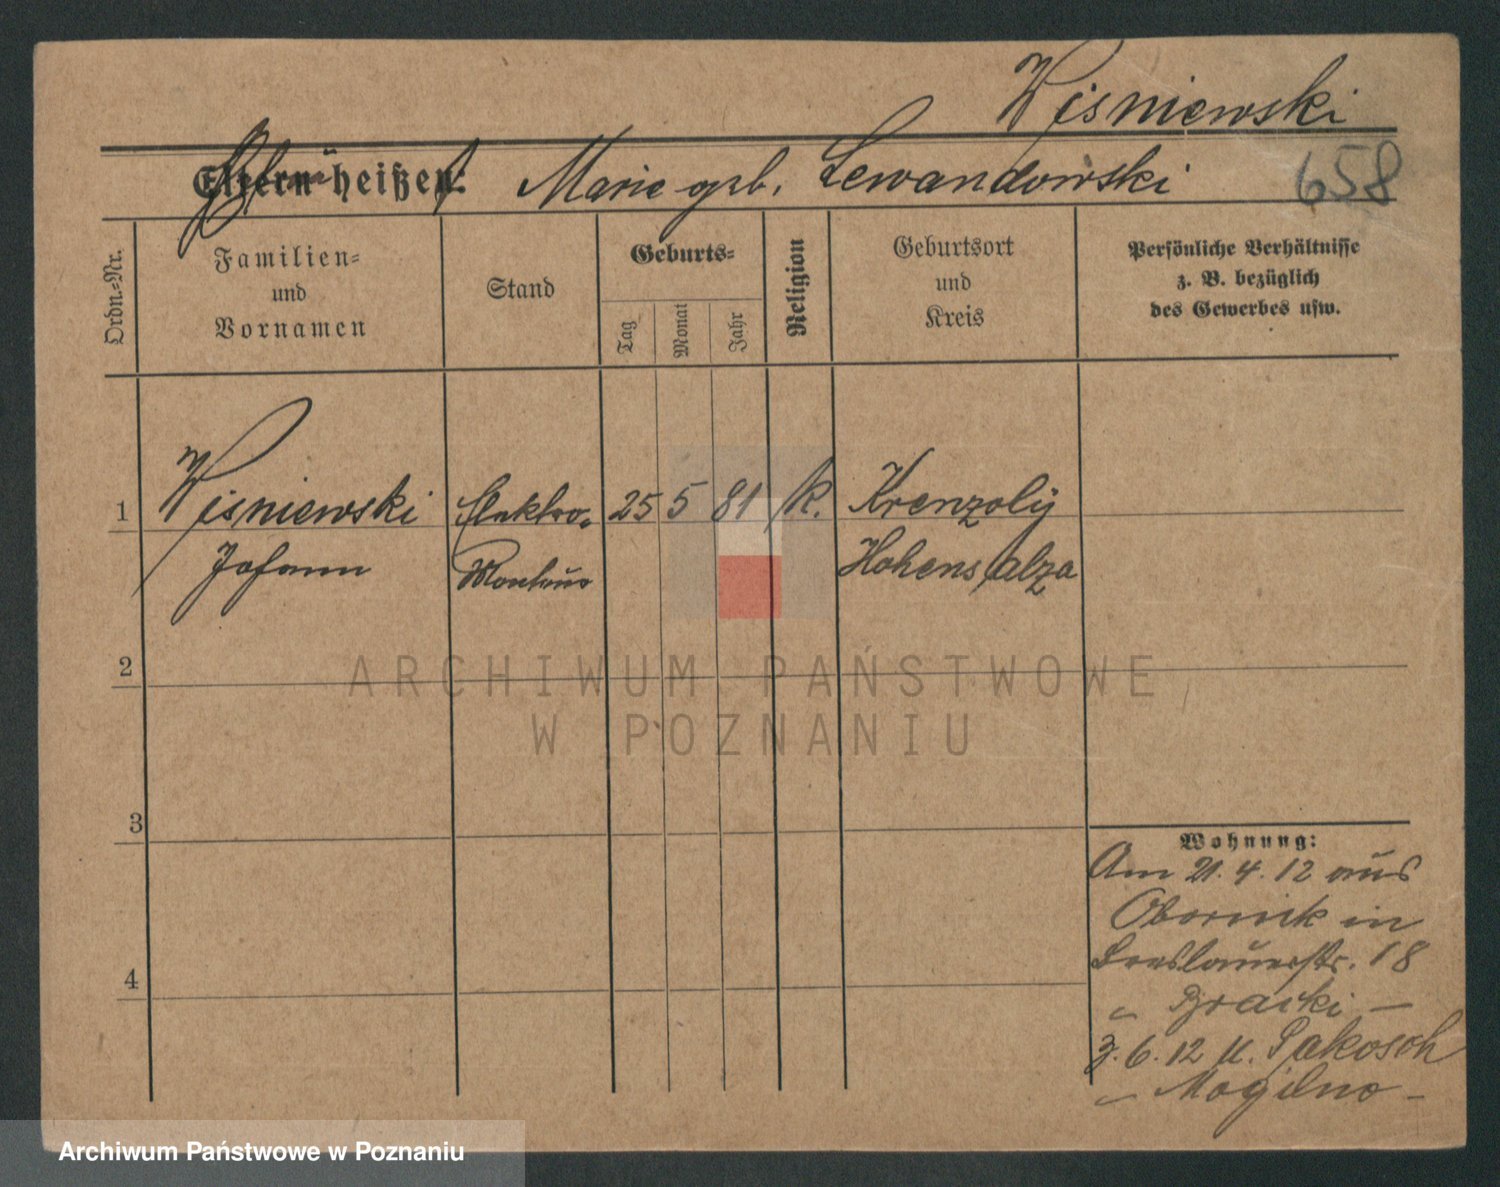 Wisniewski
Eltern heißen: Marie geb. Lewandowski
658
Ordn.-Nr.
Familien-
und
Vornamen
Stand
Geburts-
Tag
Monat
Jahr
Religion
Geburtsort
und
Kreis
Persönliche Verhältnisse
z. B. bezüglich
des Gewerbes usw.
1 Wisniewski Elektro- 25 5 81 k. Krenzoly
Johann Monteur Hohensalza
2
3
4
Wohnung:
Am 21.4.12 aus
Obornik in
Breslauerstr. 18
" Bracki -
3.6.12 n. Pakosch
" Mogilno -
ARCHIWUM PAŃSTWOWE
W POZNANIU
Archiwum Państwowe w Poznaniu